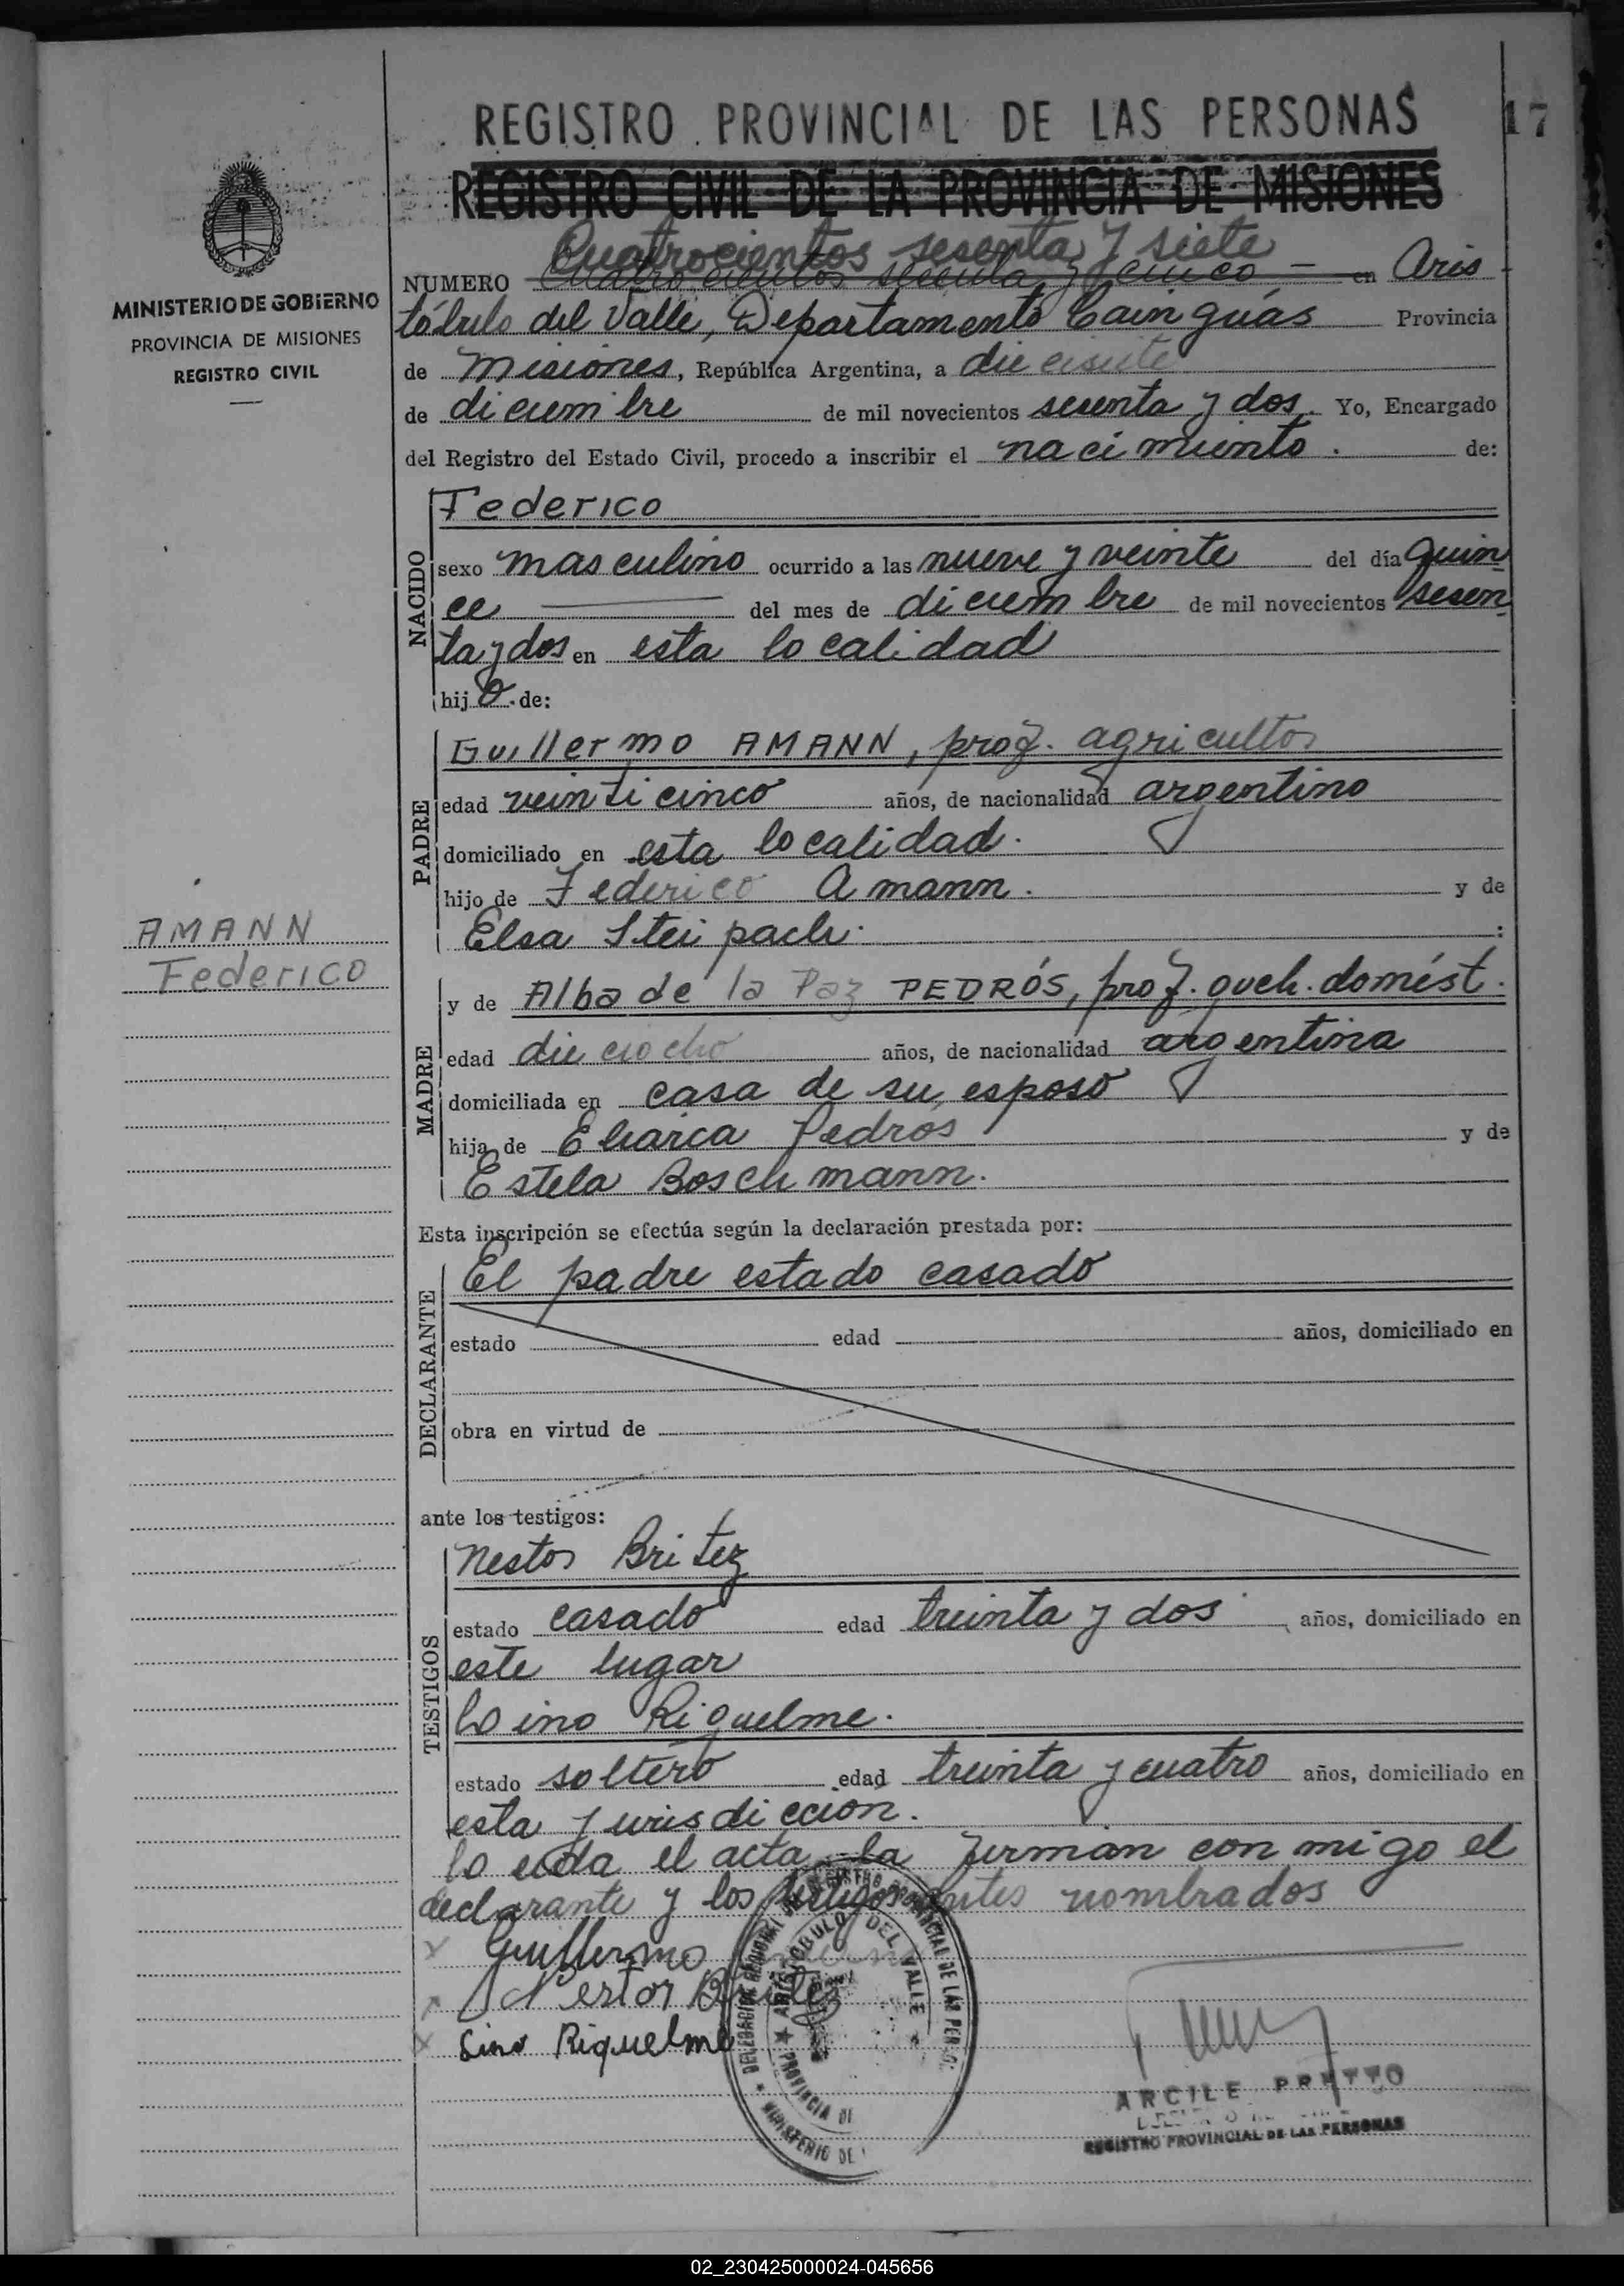 REGISTRO PROVINCIAL DE LAS PERSONAS
17
REGISTRO CIVIL DE LA PROVINCIA DE MISIONES
MINISTERIO DE GOBIERNO
PROVINCIA DE MISIONES
REGISTRO CIVIL
Cuatrocientos sesenta y siete
NUMERO Cuatro cientos sesenta y cinco en Aris
tóbulo del Valle, Departamento Cainguás Provincia
de Misiones, República Argentina, a diecisiete
de diciembre de mil novecientos sesenta y dos. Yo, Encargado
del Registro del Estado Civil, procedo a inscribir el nacimiento. de:
NACIDO
Federico
sexo masculino ocurrido a las nueve y veinte del día quin
ce del mes de diciembre de mil novecientos sesen
ta y dos en esta localidad
hijo de:
PADRE
Guillermo AMANN, prof. agricultor
edad veinticinco años, de nacionalidad argentino
domiciliado en esta localidad.
hijo de Federico Amann. y de
Elsa :
AMANN
Federico
MADRE
y de Alba de la Paz PEDRÓS, prof. queh. domést.
edad dieciocho años, de nacionalidad argentina
domiciliada en casa de su esposo
hija de Pedrós y de
Estela Boschmann.
Esta inscripción se efectúa según la declaración prestada por:
DECLARANTE
El padre estado casado
estado edad años, domiciliado en
obra en virtud de
ante los testigos:
TESTIGOS
Nestor Britez
estado casado edad treinta y dos años, domiciliado en
este lugar
Lino Riquelme.
estado soltero edad treinta y cuatro años, domiciliado en
esta jurisdiccion.
Leida el acta, la firman conmigo el
declarante y los testigos antes nombrados
Guillermo
Nestor Britez
Lino Riquelme
DELEGACIÓN REGIONAL DEL REGISTRO PROVINCIAL DE LAS PERSO
ARISTOBULO DEL VALLE
PROVINCIA DE
MINISTERIO DE
ARCILE PRETTO
REGISTRO PROVINCIAL DE LAS PERSONAS
02_230425000024-045656